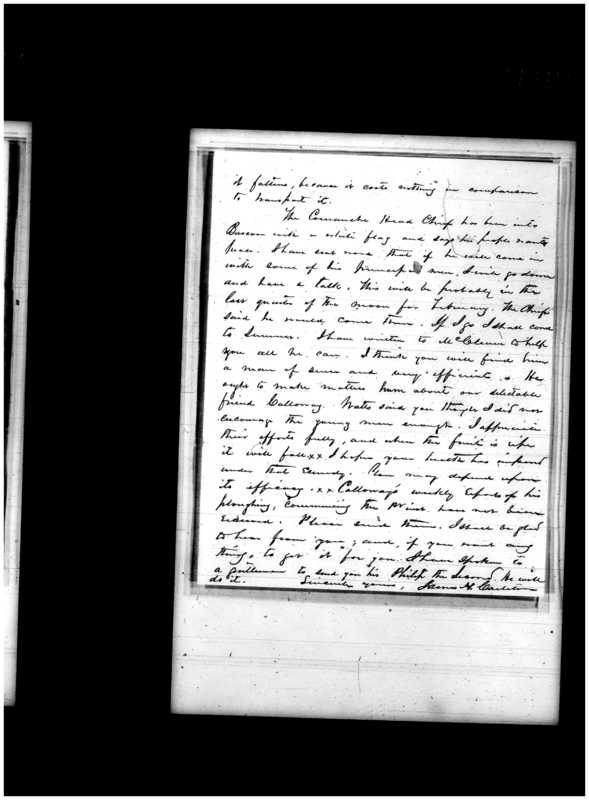 it fattens, because it costs nothing in comparison
to transport it.
The Comanche Head Chief has been into
Bascom with a white flag and says his people wants
peace. I have sent word that if he will come in
with some of his principal men, I will go down
and have a talk. This will be probably in the
last quarter of the moon for February. The Chief
said he would come then. If I go I shall come
to Sumner. I have written to McCleave to help
you all he can. I think you will find him
a man of sense and very efficient. He
ought to make matters hum about our delectable
friend Calloway. Watts said you thought I did not
encourage the young men enough. I appreciate
their efforts fully, and when the fruit is ripe
it will fall. x x I hope your health has improved
under that remedy. You may depend upon
its efficacy. x x Calloway's weekly reports of his
ploughing, commencing the have not been
received. Please send them. I shall be glad
to hear from you; and, if you want any
thing, to get it for you. I have spoken to
a gentleman to send you his Philip the Second. He will
do it. Sincerely yours, James H. Carleton